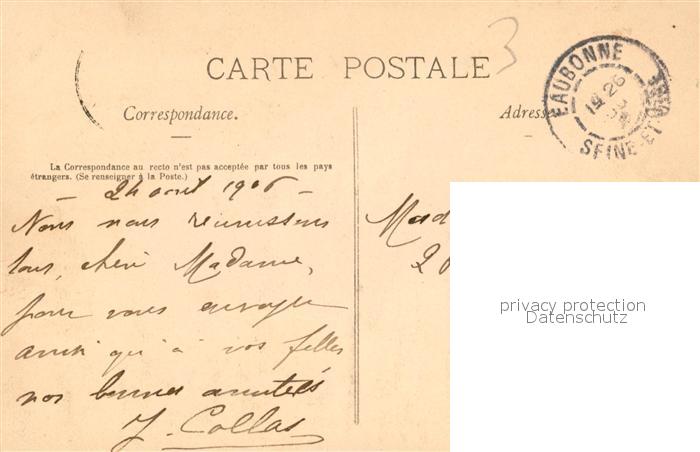 3
CARTE POSTALE
Correspondance.
Adresse
EAUBONNE
26
SEINE-ET-OISE
La Correspondance au recto n'est pas acceptée par tous les pays
étrangers. (Se renseigner à la Poste.)
- 24 avril 1906 -
Nous nous réunissons
tous, chère Madame,
pour vous envoyer
ainsi qu'à vos filles
nos bonnes amitiés
J. Collas
Mad
20
privacy protection
Datenschutz